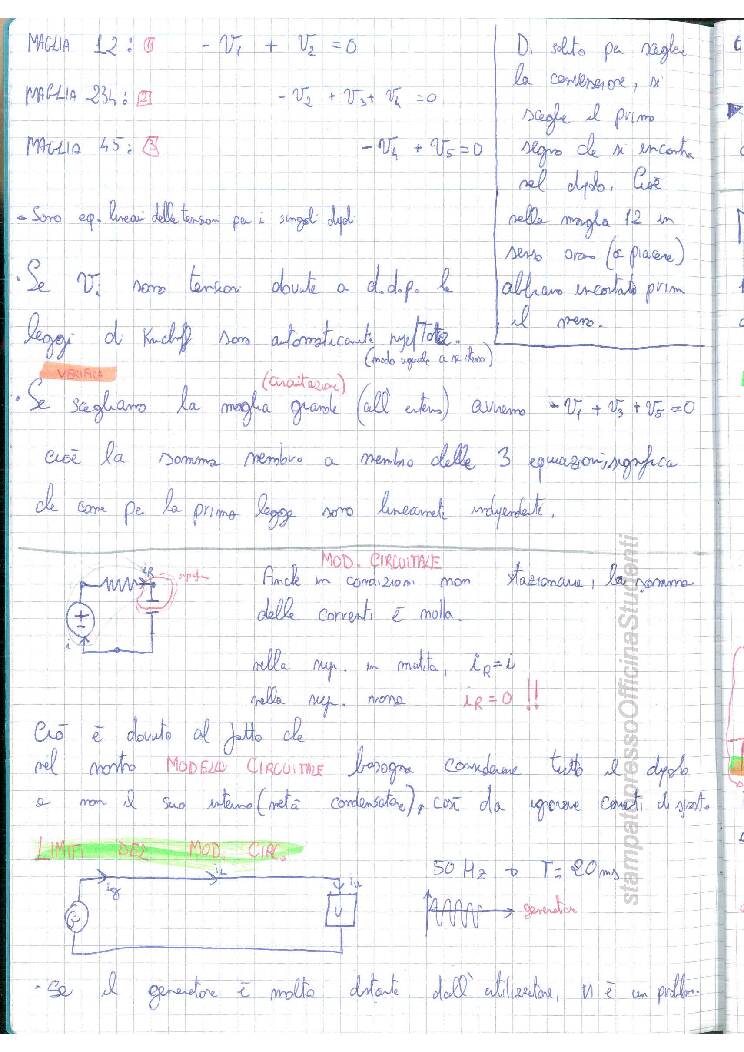 MAGLIA 12: 1 - V1 + V2 = 0
MAGLIA 234: 2 - V2 + V3 + V4 = 0
MAGLIA 45: 3 - V4 + V5 = 0
- Sono eq. lineari delle tensioni per i singoli dipoli
Di solito per scegliere
la convenzione, si
sceglie il primo
segno che si incontra
nel dipolo. Cioè
nella maglia 12 in
senso orario (a piacere)
abbiamo incontrato prima
il meno.
· Se Vi sono tensioni dovute a d.d.p. le
leggi di Kirchoff sono automaticamente rispettate.
(modo uguale a se stesso)
VERIFICA
(circuitazione)
· Se scegliamo la maglia grande (all'esterno) avremo - V1 + V3 + V5 = 0
cioè la somma membro a membro delle 3 equazioni, significa
che come per la prima legge sono linearmente indipendente.
MOD. CIRCUITALE
iR
i
Anche in condizioni non stazionarie, la somma
delle correnti è nulla.
nella sup. in matita, iR = i
nella sup. rossa iR = 0 !!
Ciò è dovuto al fatto che
nel nostro MODELLO CIRCUITALE bisogna considerare tutto il dipolo
e non il suo interno (metà condensatore), così da ignorare correnti di spost.
LIMITI DEL MOD. CIRC.
ig iu iu
G U
50 Hz → T = 20 ms
generatore
· Se il generatore è molto distante dall'utilizzatore, vi è un problem.
stampatopressoOfficinaStudenti